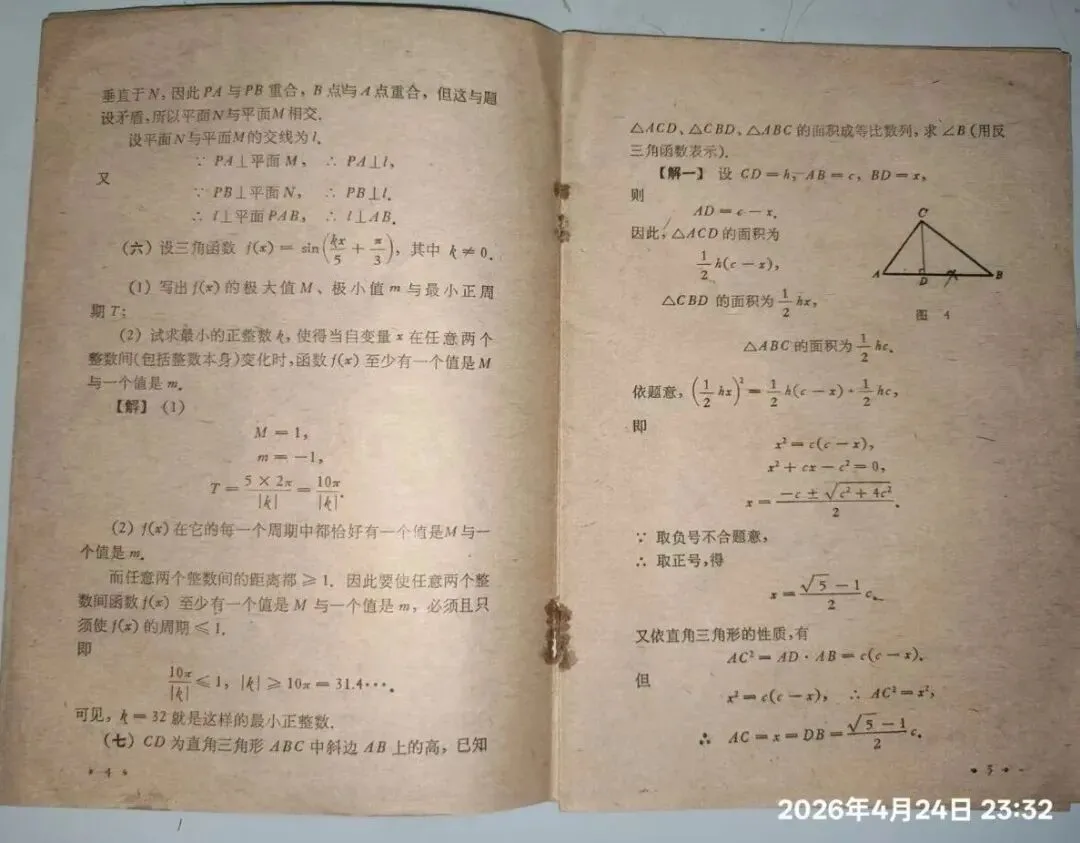 垂直于N,因此PA与PB重合,B点与A点重合,但这与题
设矛盾,所以平面N与平面M相交.
设平面N与平面M的交线为l.
∵ PA⊥平面M, ∴ PA⊥l,
又
∵ PB⊥平面N, ∴ PB⊥l.
∴ l⊥平面PAB, ∴ l⊥AB.
(六)设三角函数 f(x)=sin(kx/5+π/3), 其中 k≠0.
(1) 写出f(x)的极大值M、极小值m与最小正周
期T;
(2) 试求最小的正整数k,使得当自变量x在任意两个
整数间(包括整数本身)变化时,函数f(x)至少有一个值是M
与一个值是m.
【解】 (1)
M=1,
m=-1,
T=5×2π/|k|=10π/|k|.
(2) f(x)在它的每一个周期中都恰好有一个值是M与一
个值是m.
而任意两个整数间的距离都≥1. 因此要使任意两个整
数间函数f(x) 至少有一个值是M与一个值是m, 必须且只
须使f(x)的周期≤1.
即
10π/|k|≤1, |k|≥10π=31.4···.
可见, k=32就是这样的最小正整数.
(七) CD为直角三角形ABC中斜边AB上的高,已知
• 4 •
△ACD、△CBD、△ABC的面积成等比数列,求∠B(用反
三角函数表示).
【解一】 设 CD=h, AB=c, BD=x,
则
AD=c-x.
因此,△ACD的面积为
1/2 h(c-x),
△CBD的面积为 1/2 hx,
△ABC的面积为 1/2 hc.
C
A
D
B
图 4
依题意, (1/2 hx)²=1/2 h(c-x)·1/2 hc,
即
x²=c(c-x),
x²+cx-c²=0,
x=(-c±√(c²+4c²))/2.
∵ 取负号不合题意,
∴ 取正号,得
x=(√5-1)/2 c.
又依直角三角形的性质,有
AC²=AD·AB=c(c-x).
但
x²=c(c-x), ∴ AC²=x²,
∴ AC=x=DB=(√5-1)/2 c.
• 5 •
2026年4月24日 23:32